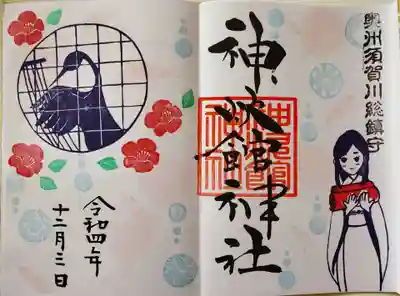 奥州須賀川総鎮守
神炊館神社
令和四年
十二月三日